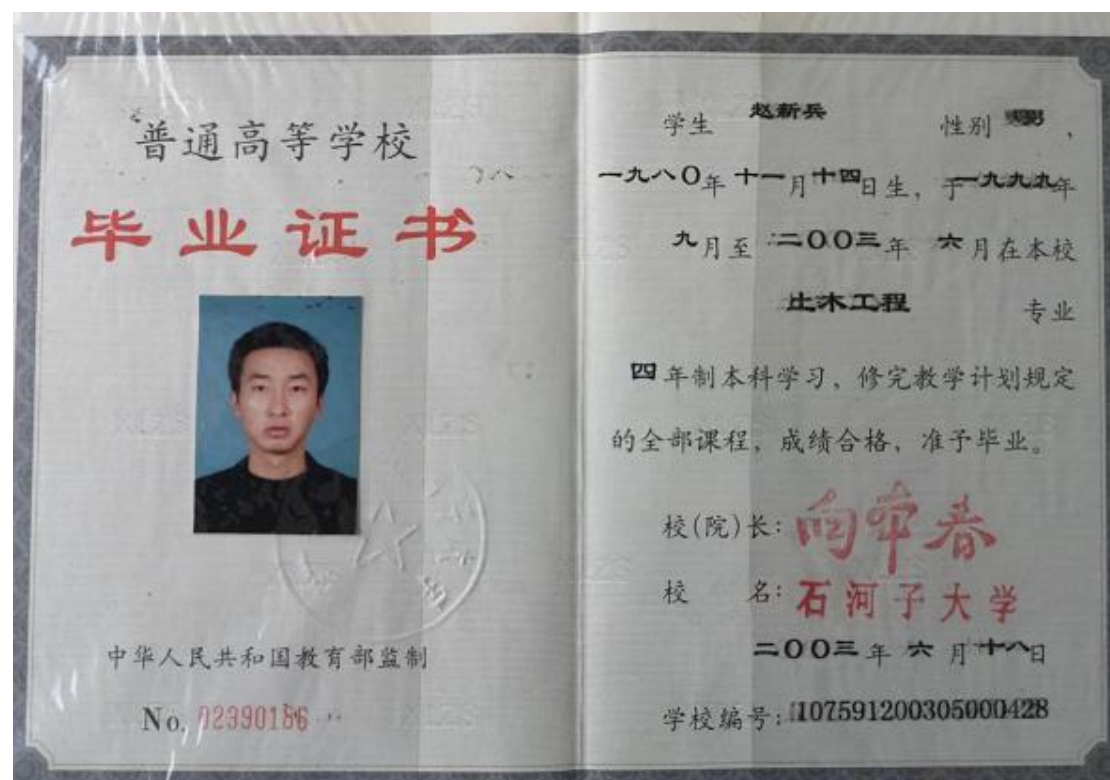 普通高等学校
毕业证书
中华人民共和国教育部监制
No. 02390186
学生 赵新兵 性别 男,
一九八〇年十一月十四日生, 于一九九九年
九月至二〇〇三年六月在本校
土木工程 专业
四年制本科学习, 修完教学计划规定
的全部课程, 成绩合格, 准予毕业。
校(院)长: 向本春
校 名: 石河子大学
二〇〇三年六月十八日
学校编号: 107591200305000428